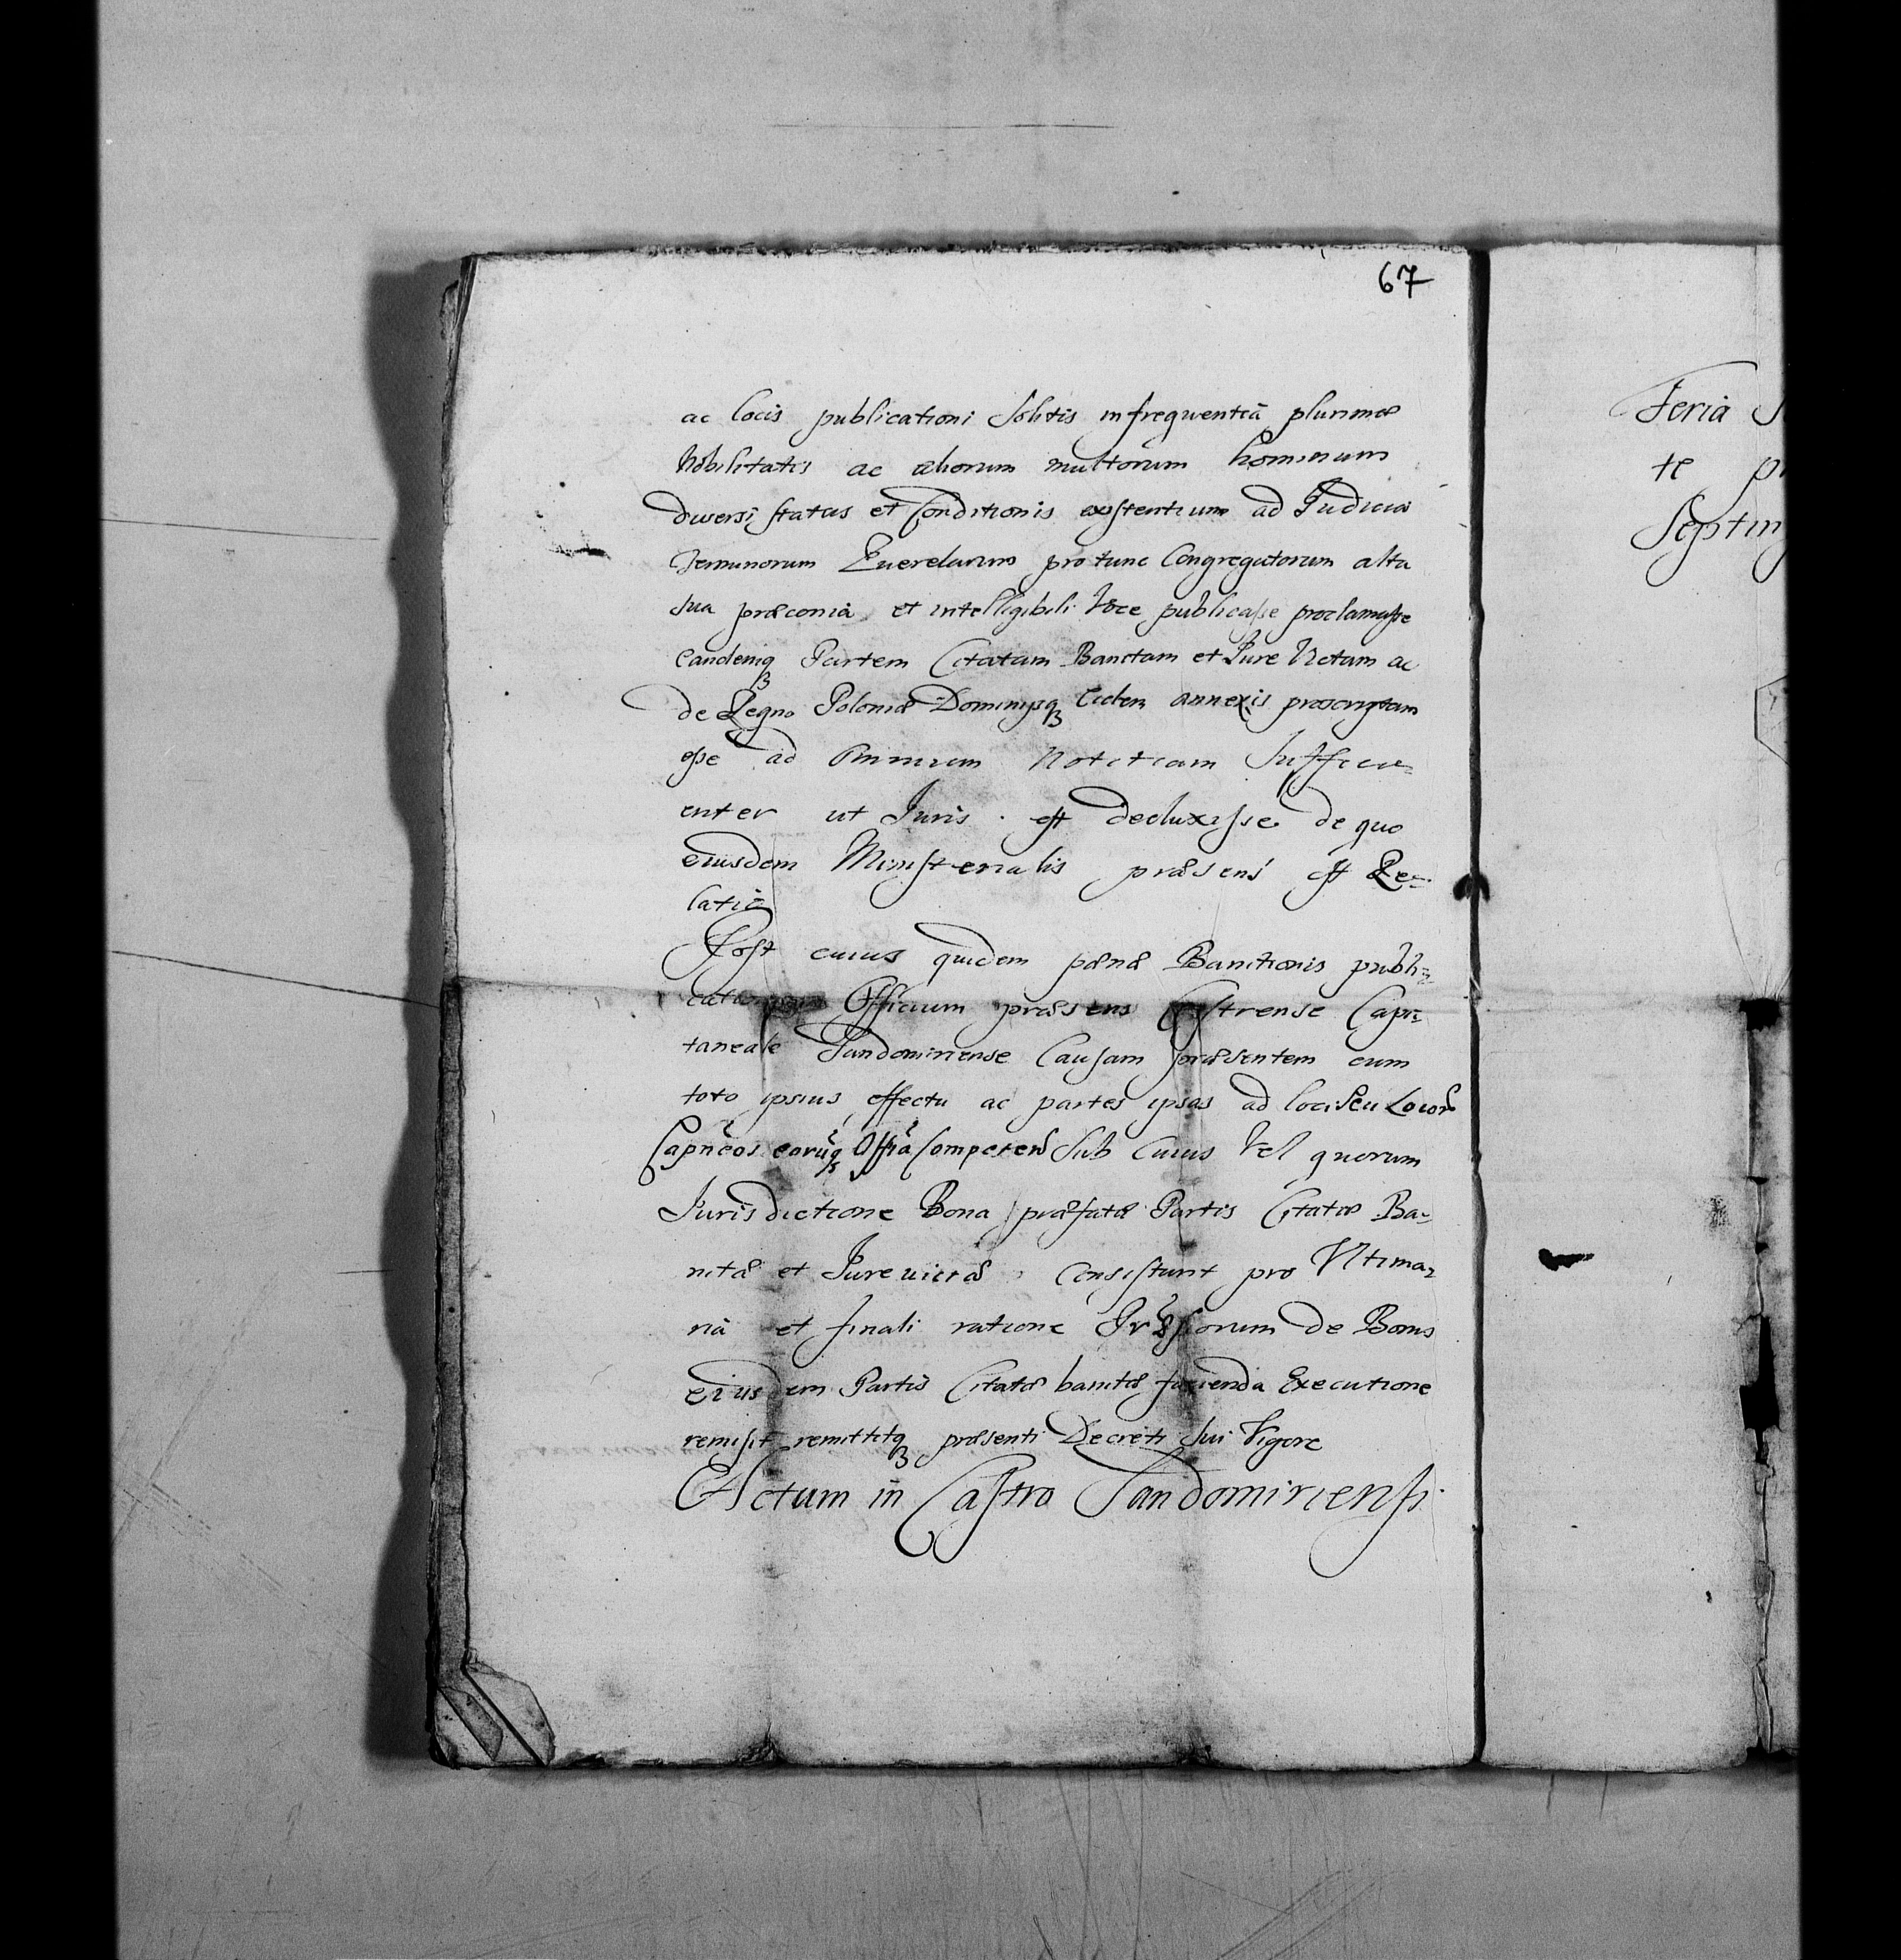 67
ac locis publicationi solitis in frequentiâ plurimæ
Nobilitatis ac aliorum multorum hominum
diversi status et Conditionis existentium ad Judicia
Terminorum Querelarum pro tunc Congregatorum alta
sua præconia et intelligibili Voce publicasse proclamasse
eandemq Partem Citatam Banitam et Jure Victam ac
de Regno Poloniæ Dominijsq eidem annexis proscriptam
esse ad Omnium Notitiam Suffici=
enter ut Juris est deduxisse de quo
eiusdem Ministerialis præsens est Re=
latio
Post cuius quidem pænæ Banitionis publi=
Officium præsens Castrense Capi=
taneale Sandomiriense Causam præsentem cum
toto ipsius effectu ac partes ipsas ad loci seu Locor
Capneos eorūq Offia Competen Sub Cuius Vel quorum
Jurisdictione Bona præfatæ Partis Citatæ Ba=
nitæ et Jure victæ Consistunt pro Vltima=
riâ et finali ratione de Bonis
eiusdem Partis Citatæ banitæ facienda Executione
remisit remittitq præsenti Decreti sui Vigore
Actum in Castro Sandomiriensi
Feria
te
Septin